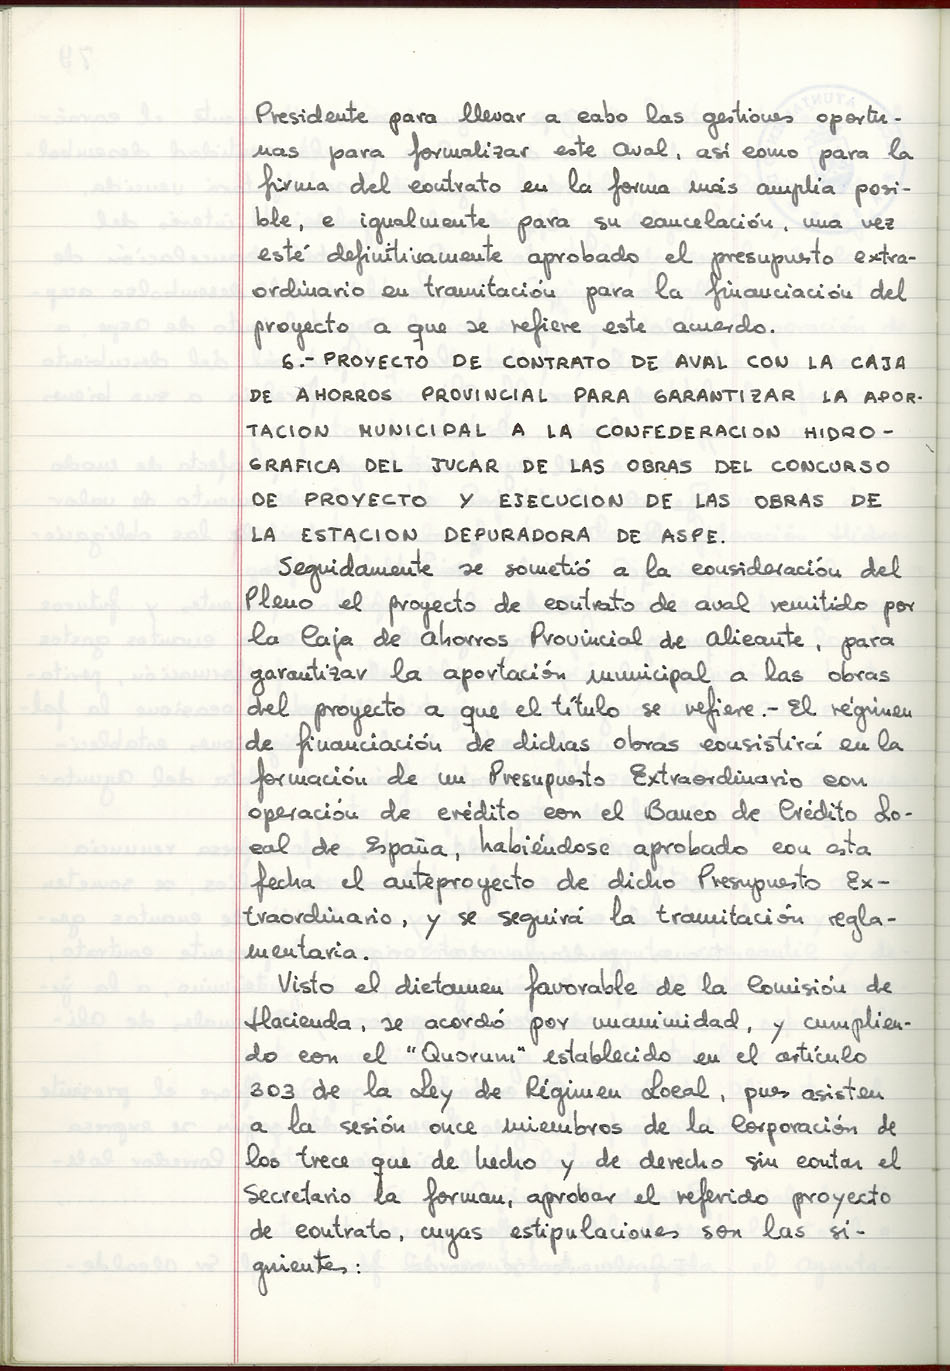 Presidente para llevar a cabo las gestiones oportu-
nas para formalizar este Aval, así como para la
firma del contrato en la forma más amplia posi-
ble, e igualmente para su cancelación, una vez
esté definitivamente aprobado el presupuesto extra-
ordinario en tramitación para la financiación del
proyecto a que se refiere este acuerdo.
6.- PROYECTO DE CONTRATO DE AVAL CON LA CAJA
DE AHORROS PROVINCIAL PARA GARANTIZAR LA APOR-
TACION MUNICIPAL A LA CONFEDERACION HIDRO-
GRAFICA DEL JUCAR DE LAS OBRAS DEL CONCURSO
DE PROYECTO Y EJECUCION DE LAS OBRAS DE
LA ESTACION DEPURADORA DE ASPE.
Seguidamente se sometió a la consideración del
Pleno el proyecto de contrato de aval remitido por
la Caja de Ahorros Provincial de Alicante, para
garantizar la aportación municipal a las obras
del proyecto a que el título se refiere.- El régimen
de financiación de dichas obras consistirá en la
formación de un Presupuesto Extraordinario con
operación de crédito con el Banco de Crédito Lo-
cal de España, habiéndose aprobado con esta
fecha el anteproyecto de dicho Presupuesto Ex-
traordinario, y se seguirá la tramitación regla-
mentaria.
Visto el dictamen favorable de la Comisión de
Hacienda, se acordó por unanimidad, y cumplien-
do con el "Quorum" establecido en el artículo
303 de la Ley de Régimen Local, pues asisten
a la sesión once miembros de la Corporación de
los trece que de hecho y de derecho sin contar el
Secretario la forman, aprobar el referido proyecto
de contrato, cuyas estipulaciones son las si-
guientes: